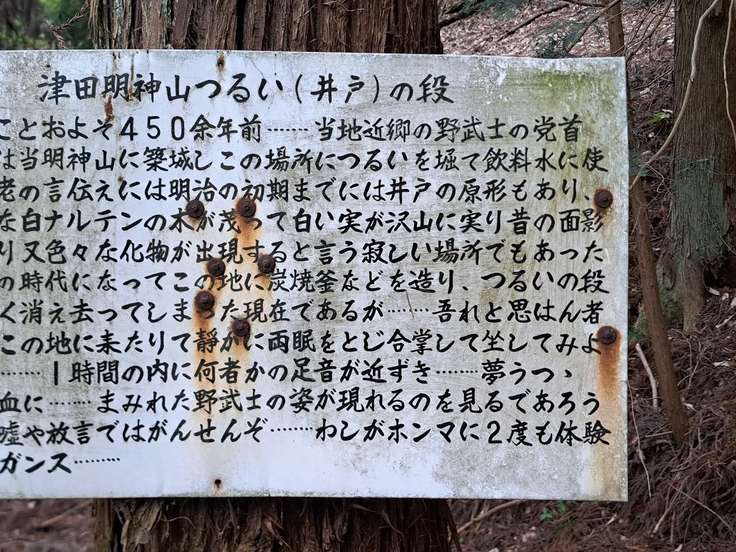 津田明神山つるい(井戸)の段
ことおよそ450余年前……当地近郷の野武士の党首
は当明神山に築城しこの場所につるいを堀て飲料水に使
老の言伝えには明治の初期までには井戸の原形もあり、
な白ナルテンの木が茂って白い実が沢山に実り昔の面影
り又色々な化物が出現すると言う寂しい場所でもあった
の時代になってこの地に炭焼釜などを造り、つるいの段
く消え去ってしまった現在であるが……吾れと思はん者
この地に来たりて静かに両眠をとじ合掌して坐してみよ
……1時間の内に何者かの足音が近ずき……夢うつゝ
血に……まみれた野武士の姿が現れるのを見るであろう
嘘や放言ではがんせんぞ……わしがホンマに2度も体験
ガンス……